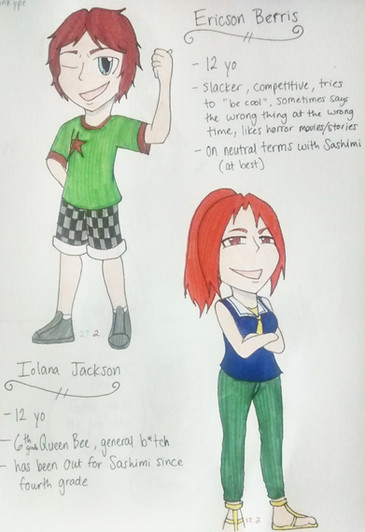 Ericson Berris
- 12 yo
- slacker, competitive, tries
to "be cool", sometimes says
the wrong thing at the wrong
time, likes horror movies/stories
- on neutral terms with Sashimi
(at best)
Iolana Jackson
- 12 yo
- 6th grade Queen Bee, general b*tch
- has been out for Sashimi since
fourth grade